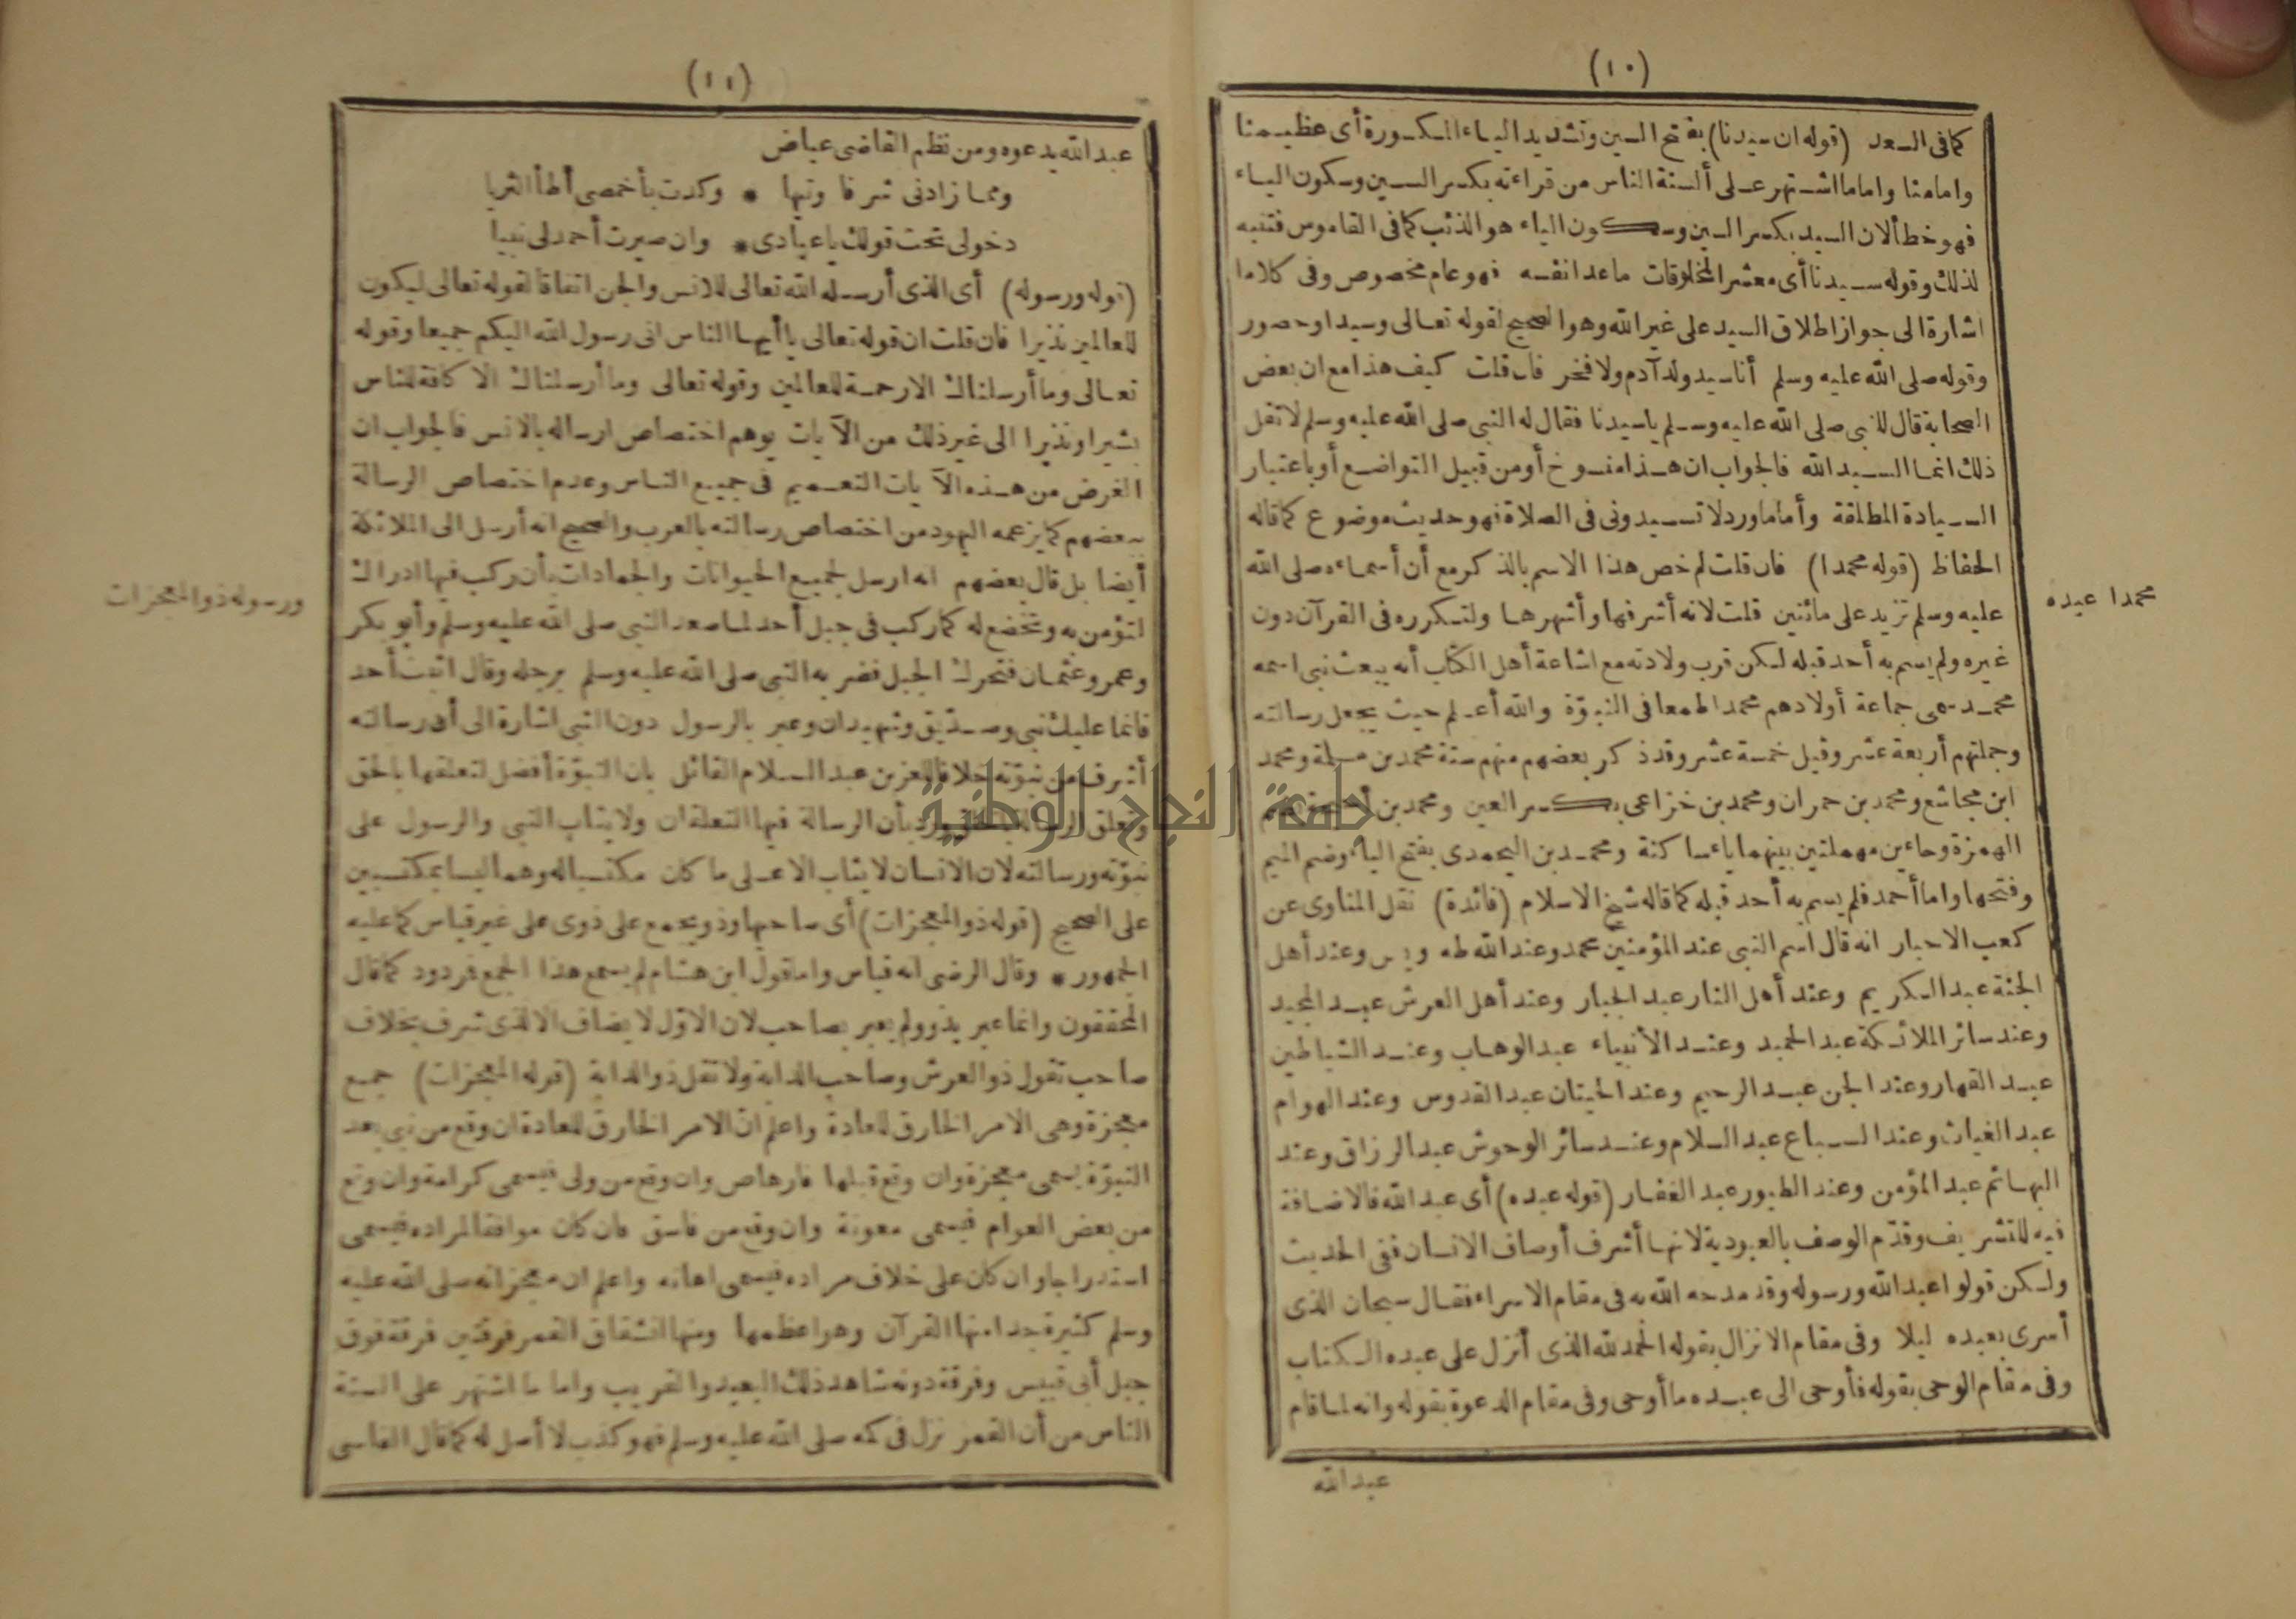 (١٠)
كما فى السعد (قوله ان سيدنا) بفتح السين وتشديد الياء المكسورة أى عظيمنا
وامامنا واماما اشتهر على ألسنة الناس من قراءته بكسر السين وسكون الياء
فهو خطألان السيد بكسر السين وسكون الياء هو الذئب كما فى القاموس فتنبه
لذلك وقوله سيدنا أى معشر المخلوقات ما عدا نفسه فهو عام مخصوص وفى كلاما
اشارة الى جواز اطلاق السيد على غير الله وهو الصحيح لقوله تعالى وسيدا وحصورا
وقوله صلى الله عليه وسلم أنا سيد ولد آدم ولا فخر فان قلت كيف هذا مع ان بعض
الصحابة قال للنبى صلى الله عليه وسلم ياسيدنا فقال له النبى صلى الله عليه وسلم لا تقل
ذلك انما السيد الله فالجواب ان هذا منسوخ أو من قبيل التواضع أو باعتبار
السيادة المطلقة وأما ما ورد لا تسيدونى فى الصلاة فهو حديث موضوع كما قاله
الحفاظ (قوله محمدا) فان قلت لم خص هذا الاسم بالذكر مع أن أسماءه صلى الله
عليه وسلم تزيد على مائتين قلت لانه أشرفها وأشهرها ولتكرره فى القرآن دون
غيره ولم يسم به أحد قبله لكن قرب ولادته مع اشاعة أهل الكتاب أنه يبعث نبى اسمه
محمد سمى جماعة أولادهم محمدا طمعا فى النبوّة والله أعلم حيث يجعل رسالته
وجملتهم أربعة عشر وقيل خمسة عشر وقد ذكر بعضهم منهم ستة محمد بن مسلمة ومحمد
ابن مجاشع ومحمد بن حمران ومحمد بن خزاعى بكسر العين ومحمد بن أحيحة بضم
الهمزة وحاءين مهملتين بينهما ياء ساكنة ومحمد بن اليحمدى بفتح الياء وضم الميم
وفتحها واما أحمد فلم يسم به أحد قبله كما قاله شيخ الاسلام (فائدة) نقل المناوى عن
كعب الاحبار انه قال اسم النبى عند المؤمنين محمد وعند الله طه ويس وعند أهل
الجنة عبد الكريم وعند أهل النار عبد الجبار وعند أهل العرش عبد المجيد
وعند سائر الملائكة عبد الحميد وعند الأنبياء عبد الوهاب وعند الشياطين
عبد القهار وعند الجن عبد الرحيم وعند الحيتان عبد القدوس وعند الهوام
عبد الغياث وعند السباع عبد السلام وعند سائر الوحوش عبد الرزاق وعند
البهائم عبد المؤمن وعند الطيور عبد الغفار (قوله عبده) أى عبد الله فالاضافة
فيه للتشريف وقدّم الوصف بالعبودية لانها أشرف أوصاف الانسان ففى الحديث
ولكن قولوا عبد الله ورسوله وقد مدحه الله به فى مقام الاسراء فقال سبحان الذى
أسرى بعبده ليلا وفى مقام الانزال بقوله الحمد لله الذى أنزل على عبده الكتاب
وفى مقام الوحى بقوله فأوحى الى عبده ما أوحى وفى مقام الدعوة بقوله وانه لما قام
عبد الله
محمدا عبده
(١١)
عبد الله يدعوه ومن نظم القاضى عياض
ومما زادنى شرفا وتيها * وكدت بأخمصى أطأ الثريا
دخولى تحت قولك ياعبادى * وان صيرت أحمد لى نبيا
(قوله ورسوله) أى الذى أرسله الله تعالى للانس والجن اتفاقا لقوله تعالى ليكون
للعالمين نذيرا فان قلت ان قوله تعالى ياأيها الناس انى رسول الله اليكم جميعا وقوله
تعالى وما أرسلناك الا رحمة للعالمين وقوله تعالى وما أرسلناك الا كافة للناس
بشيرا ونذيرا الى غير ذلك من الآيات يوهم اختصاص ارساله بالانس فالجواب ان
الغرض من هذه الآيات التعميم فى جميع الناس وعدم اختصاص الرسالة
ببعضهم كما يزعمه اليهود من اختصاص رسالته بالعرب والصحيح انه أرسل الى الملائكة
أيضا بل قال بعضهم انه ارسل لجميع الحيوانات والجمادات بأن ركب فيها ادراك
لتؤمن به وتخضع له كما ركب فى جبل أحد لما صعد النبى صلى الله عليه وسلم وأبو بكر
وعمر وعثمان فتحرك الجبل فضربه النبى صلى الله عليه وسلم برجله وقال اثبت أحد
فانما عليك نبى وصدّيق وشهيدان وعبر بالرسول دون النبى اشارة الى أن رسالته
أشرف من نبوّته خلافا للعز بن عبد السلام القائل بان النبوّة أفضل لتعلقها بالحق
وتعلق الرسالة بالخلق ورد بأن الرسالة فيها التعلقان ولا يثاب النبى والرسول على
نبوّته ورسالته لان الانسان لا يثاب الا على ما كان مكتسبا له وهما ليسا بمكتسبين
على الصحيح (قوله ذو المعجزات) أى صاحبها وذو يجمع على ذوى على غير قياس كما عليه
الجمهور * وقال الرضى انه قياس واما قول ابن هشام لم يسمع هذا الجمع فردود كما قال
المحققون وانما عبر بذو ولم يعبر بصاحب لان الاوّل لا يضاف الا لذى شرف بخلاف
صاحب تقول ذو العرش وصاحب الدابة ولا تقل ذو الدابة (قوله المعجزات) جميع
معجزة وهى الامر الخارق للعادة واعلم انّ الامر الخارق للعادة ان وقع من نبى بعد
النبوّة يسمى معجزة وان وقع قبلها فارهاص وان وقع من ولى فيسمى كرامة وان وقع
من بعض العوام فيسمى معونة وان وقع من فاسق فان كان موافقا لمراده فيسمى
استدراجا وان كان على خلاف مراده فيسمى اهانة واعلم ان معجزاته صلى الله عليه
وسلم كثيرة جدا منها القرآن وهو اعظمها ومنها انشقاق القمر فرقتين فرقة فوق
جبل أبى قبيس وفرقة دونه شاهد ذلك البعيد والقريب واما ما اشتهر على السنة
الناس من أن القمر نزل فى كمه صلى الله عليه وسلم فهو كذب لا أصل له كما قال الفاسى
ورسوله ذو المعجزات
جامعة النجاح الوطنية